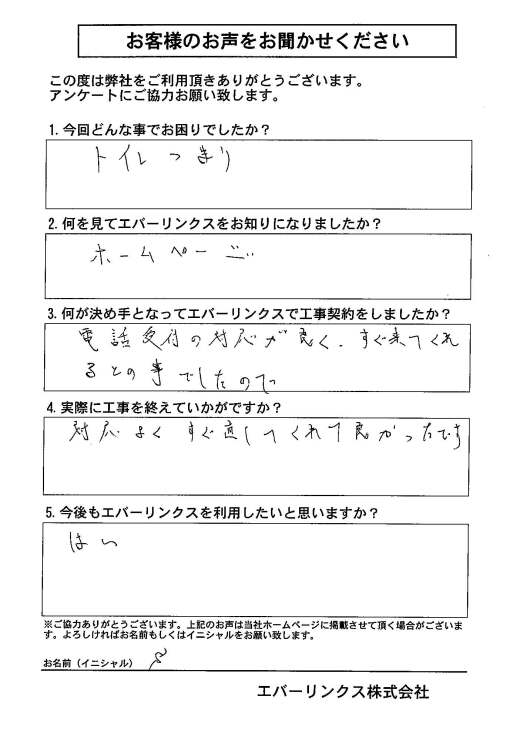 お客様のお声をお聞かせください
この度は弊社をご利用頂きありがとうございます。
アンケートにご協力お願い致します。
1. 今回どんな事でお困りでしたか？
トイレつまり
2. 何を見てエバーリンクスをお知りになりましたか？
ホームページ
3. 何が決め手となってエバーリンクスで工事契約をしましたか？
電話受付の対応が良く、すぐ来てくれ
るとの事でしたので
4. 実際に工事を終えていかがですか？
対応よくすぐ直してくれて良かったです
5. 今後もエバーリンクスを利用したいと思いますか？
はい
※ご協力ありがとうございます。上記のお声は当社ホームページに掲載させて頂く場合がございま
す。よろしければお名前もしくはイニシャルをお願い致します。
お名前（イニシャル）
エバーリンクス株式会社